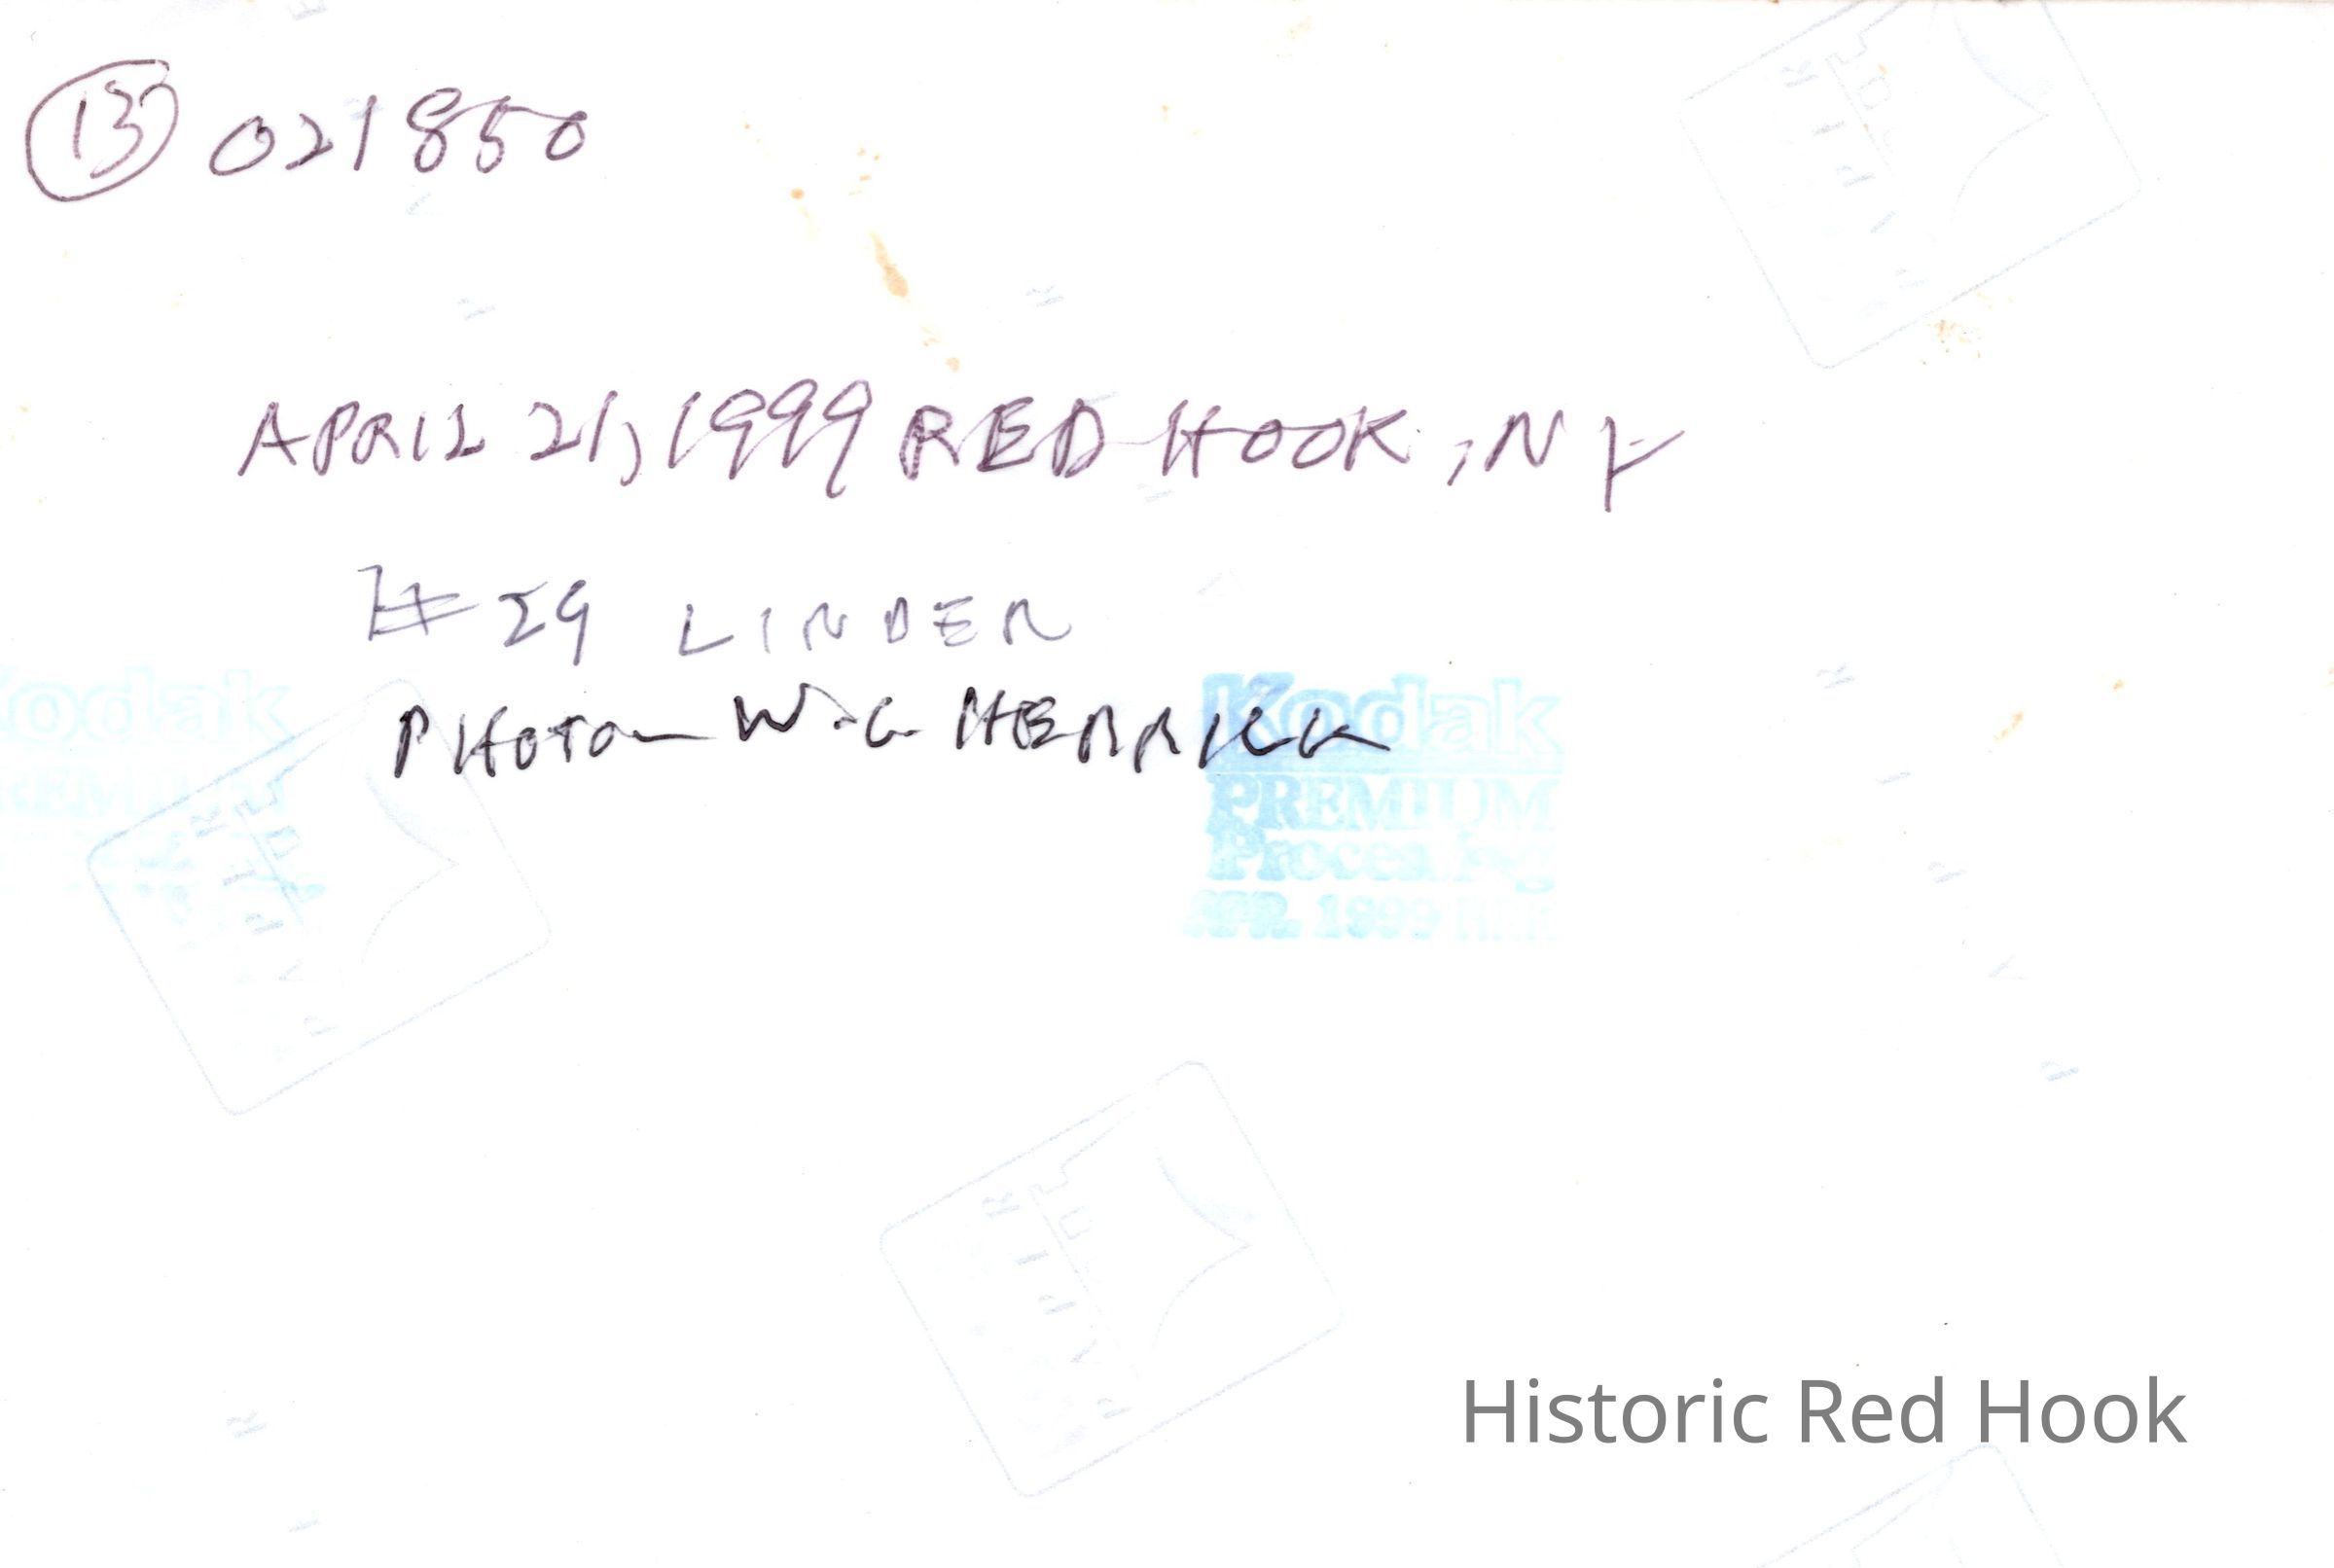 13 021850
APRIL 21, 1999 RED HOOK, NY
#29 LINDEN
PHOTO — W.C. HERRICK
Kodak
PREMIUM
Processing
APR. 1999
Kodak
Historic Red Hook